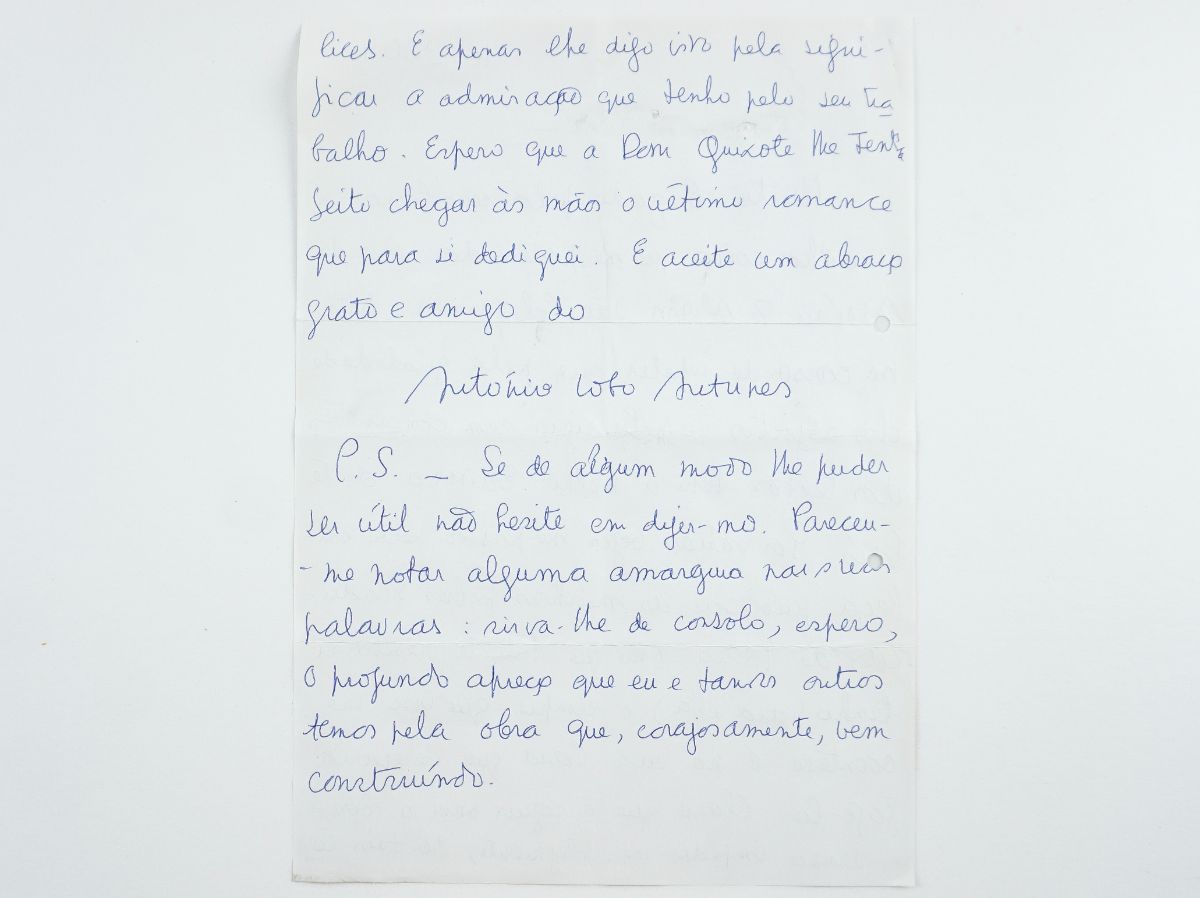 lices. E apenas lhe digo isto pela signi-
ficar a admiração que tenho pelo seu tra
balho. Espero que a Dom Quixote lhe tenha
feito chegar às mãos o último romance
que para si dediquei. E aceite um abraço
grato e amigo do
António Lobo Antunes
P.S. _ Se de algum modo lhe puder
ser útil não hesite em dizer-mo. Pareceu-
-me notar alguma amargura nas suas
palavras : sirva-lhe de consolo, espero,
o profundo apreço que eu e tantos outros
temos pela obra que, corajosamente, vem
construíndo.